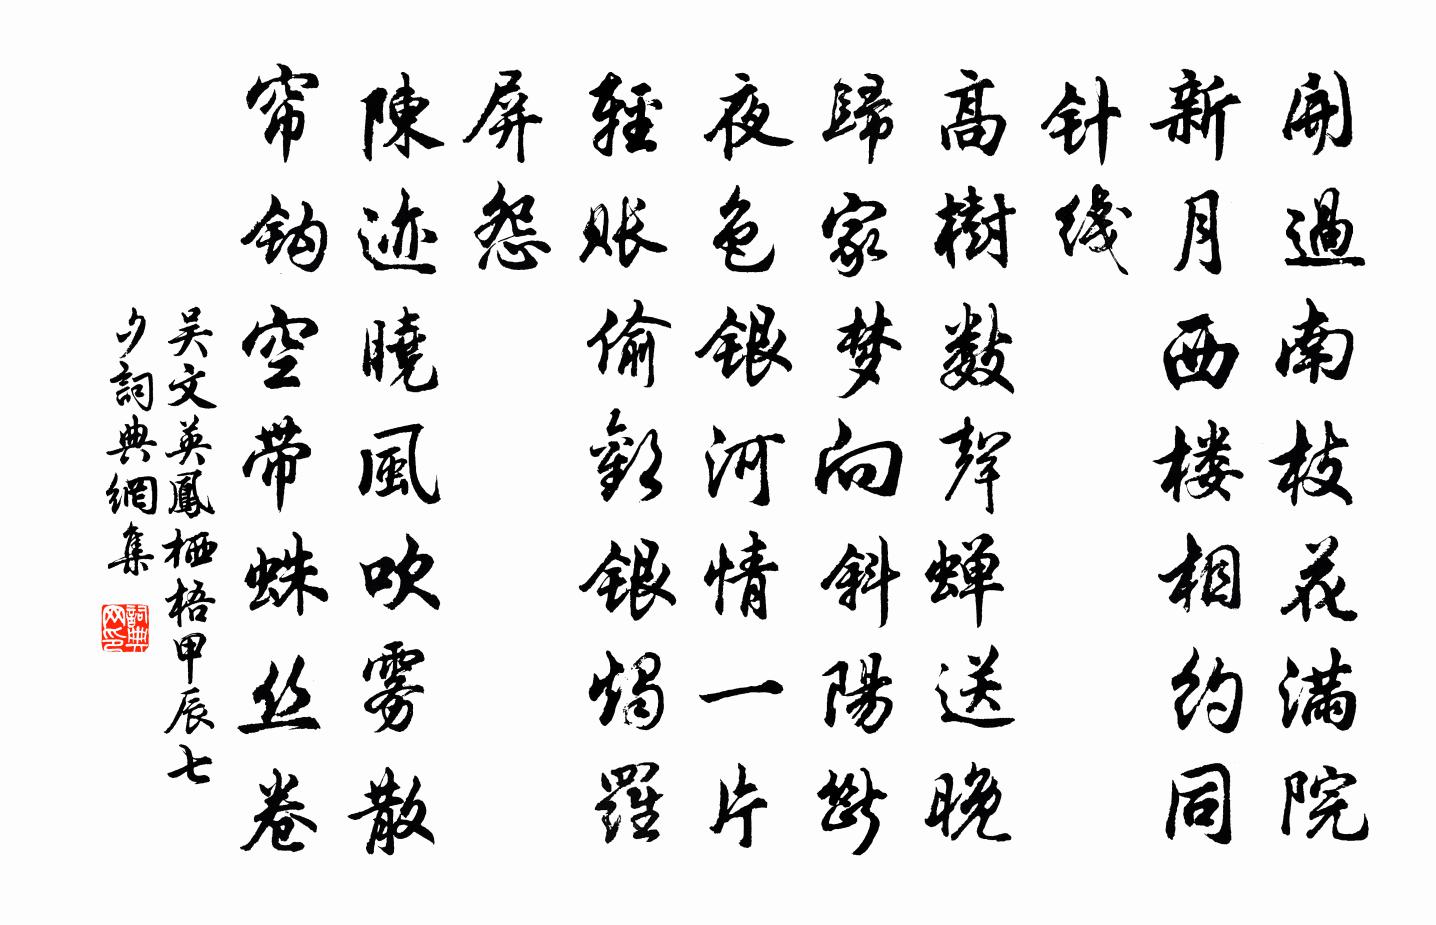 開過南枝花满院
新月西楼相約同
针线
高樹數聲蝉送晚
歸家梦向斜陽斷
夜色银河情一片
轻帐偷歡银燭羅
屏怨
陳迹曉風吹雾散
帘鈎空帶蛛丝卷
吴文英鳳栖梧甲辰七
夕詞典網集
詞典网印